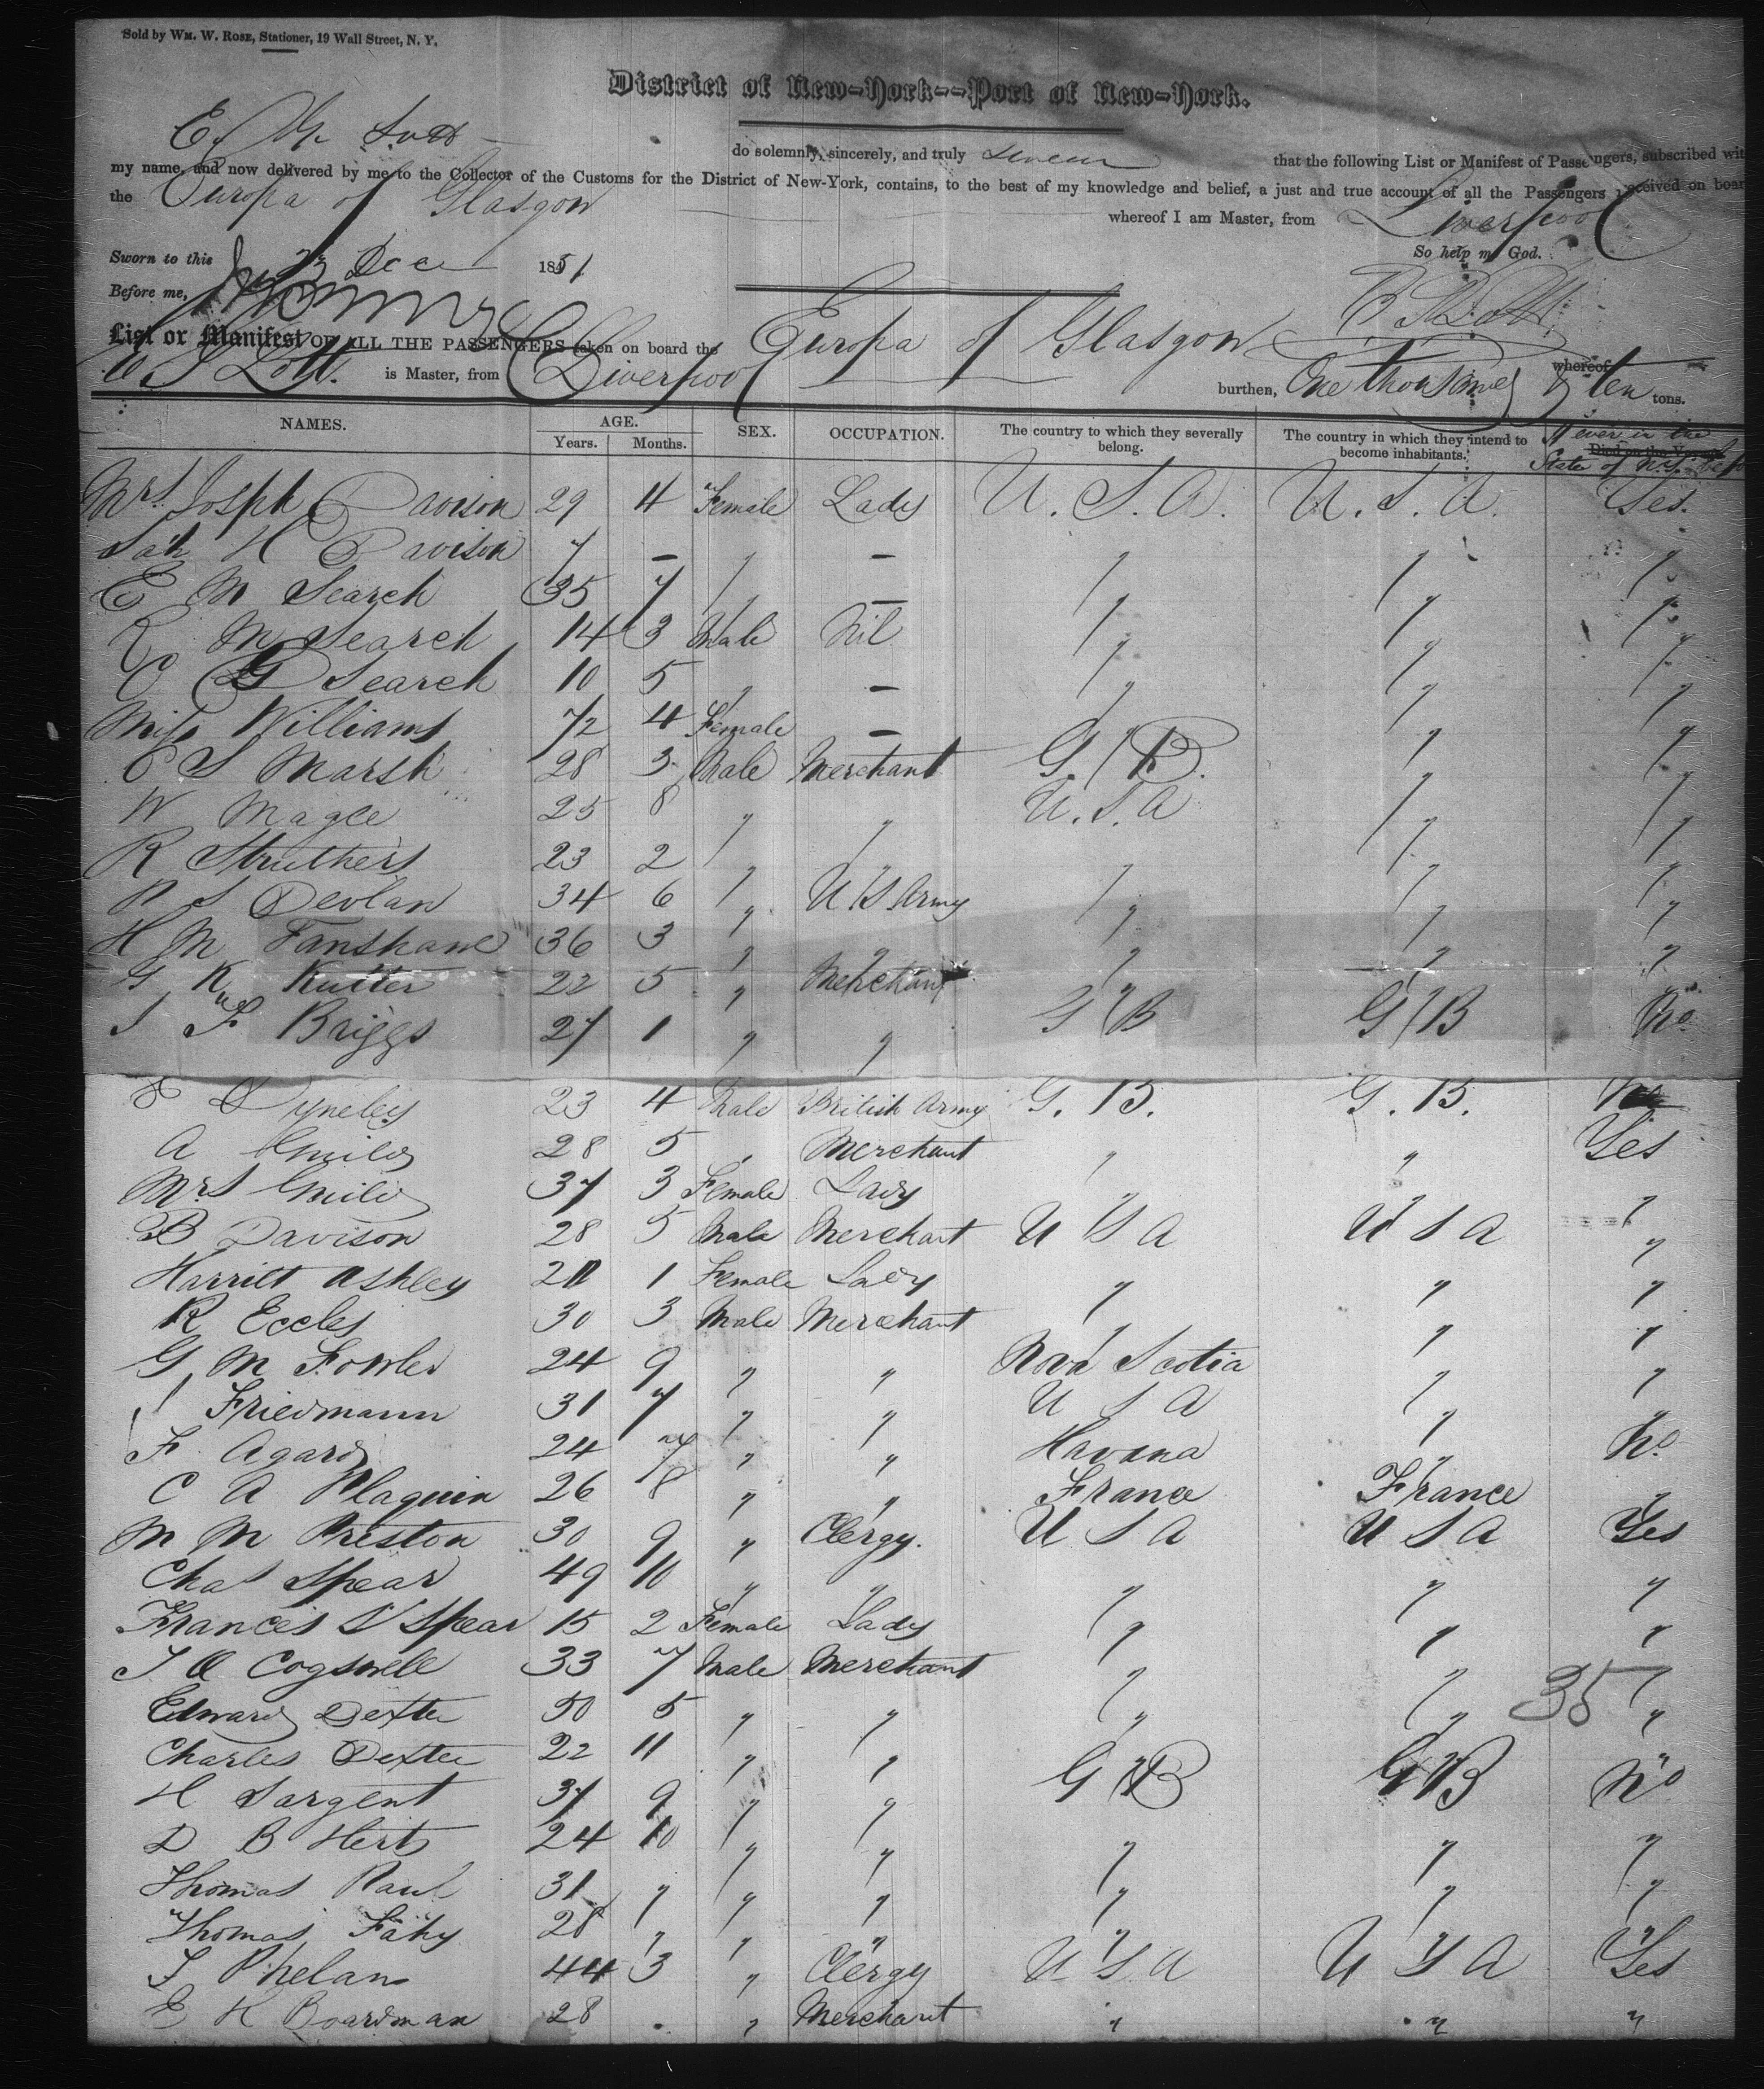 Sold by Wm. W. Rose, Stationer, 19 Wall Street, N. Y.
District of New-York--Port of New-York.
E. Lott do solemnly, sincerely, and truly swear that the following List or Manifest of Passengers, subscribed with
my name, and now delivered by me to the Collector of the Customs for the District of New-York, contains, to the best of my knowledge and belief, a just and true account of all the Passengers received on board
the Europa of Glasgow whereof I am Master, from Liverpool
Sworn to this 23 Dec 1851 So help me God.
Before me,
List or Manifest OF ALL THE PASSENGERS taken on board the Europa of Glasgow whereof
Lott. is Master, from Liverpool burthen, One thousand & ten tons.
NAMES. AGE. Years. Months. SEX. OCCUPATION. The country to which they severally belong. The country in which they intend to become inhabitants. Died on the Voyage Ever in the State of
Mrs Josph Davison 29 4 Female Lady U. S. A. U. S. A. Yes.
Sah H Davison 7 - " - " " "
E M Search 35 7 " - " " "
M Search 14 3 Male Nil " " "
G Search 10 5 " - " " "
Miss Williams 72 4 Female - " " "
S Marsh 28 3 Male Merchant G. B. " "
W Magee 25 8 " " U. S. A " "
R Struthers 23 2 " " " " "
S Devlan 34 6 " U S Army " " "
H M Fanshawe 36 3 " " " " "
G K Kutter 22 5 " Merchant " " "
J F Briggs 27 1 " " G B G B No
Dyneley 23 4 Male British Army G. B. G. B. No
A Smiley 28 5 " Merchant " " Yes
Mrs Smiley 37 3 Female Lady " " "
B Davison 28 5 Male Merchant U S A U S A "
Harriet Ashley 21 1 Female Lady " " "
R Eccles 30 3 Male Merchant " " "
G M Fowler 24 9 " " Nova Scotia " "
J Friedmann 31 7 " " U S A " "
F Agard 24 7 " " Havana " No
C A Plaquin 26 8 " " France France "
M M Preston 30 9 " Clergy. U S A U S A Yes
Chas Spear 49 10 " " " " "
Frances S Spear 15 2 Female Lady " " "
J O Cogswell 33 7 Male Merchant " " "
35
Edward Dexter 50 5 " " " " "
Charles Dexter 22 11 " " " " "
H Sargent 37 9 " " G B G B No
D B Hert 24 10 " " " " "
Thomas Paul 31 " " " " " "
Thomas Fahy 28 " " " " " "
J Phelan 44 3 " Clergy U S A U S A Yes
E K Boardman 28 " " Merchant " " "